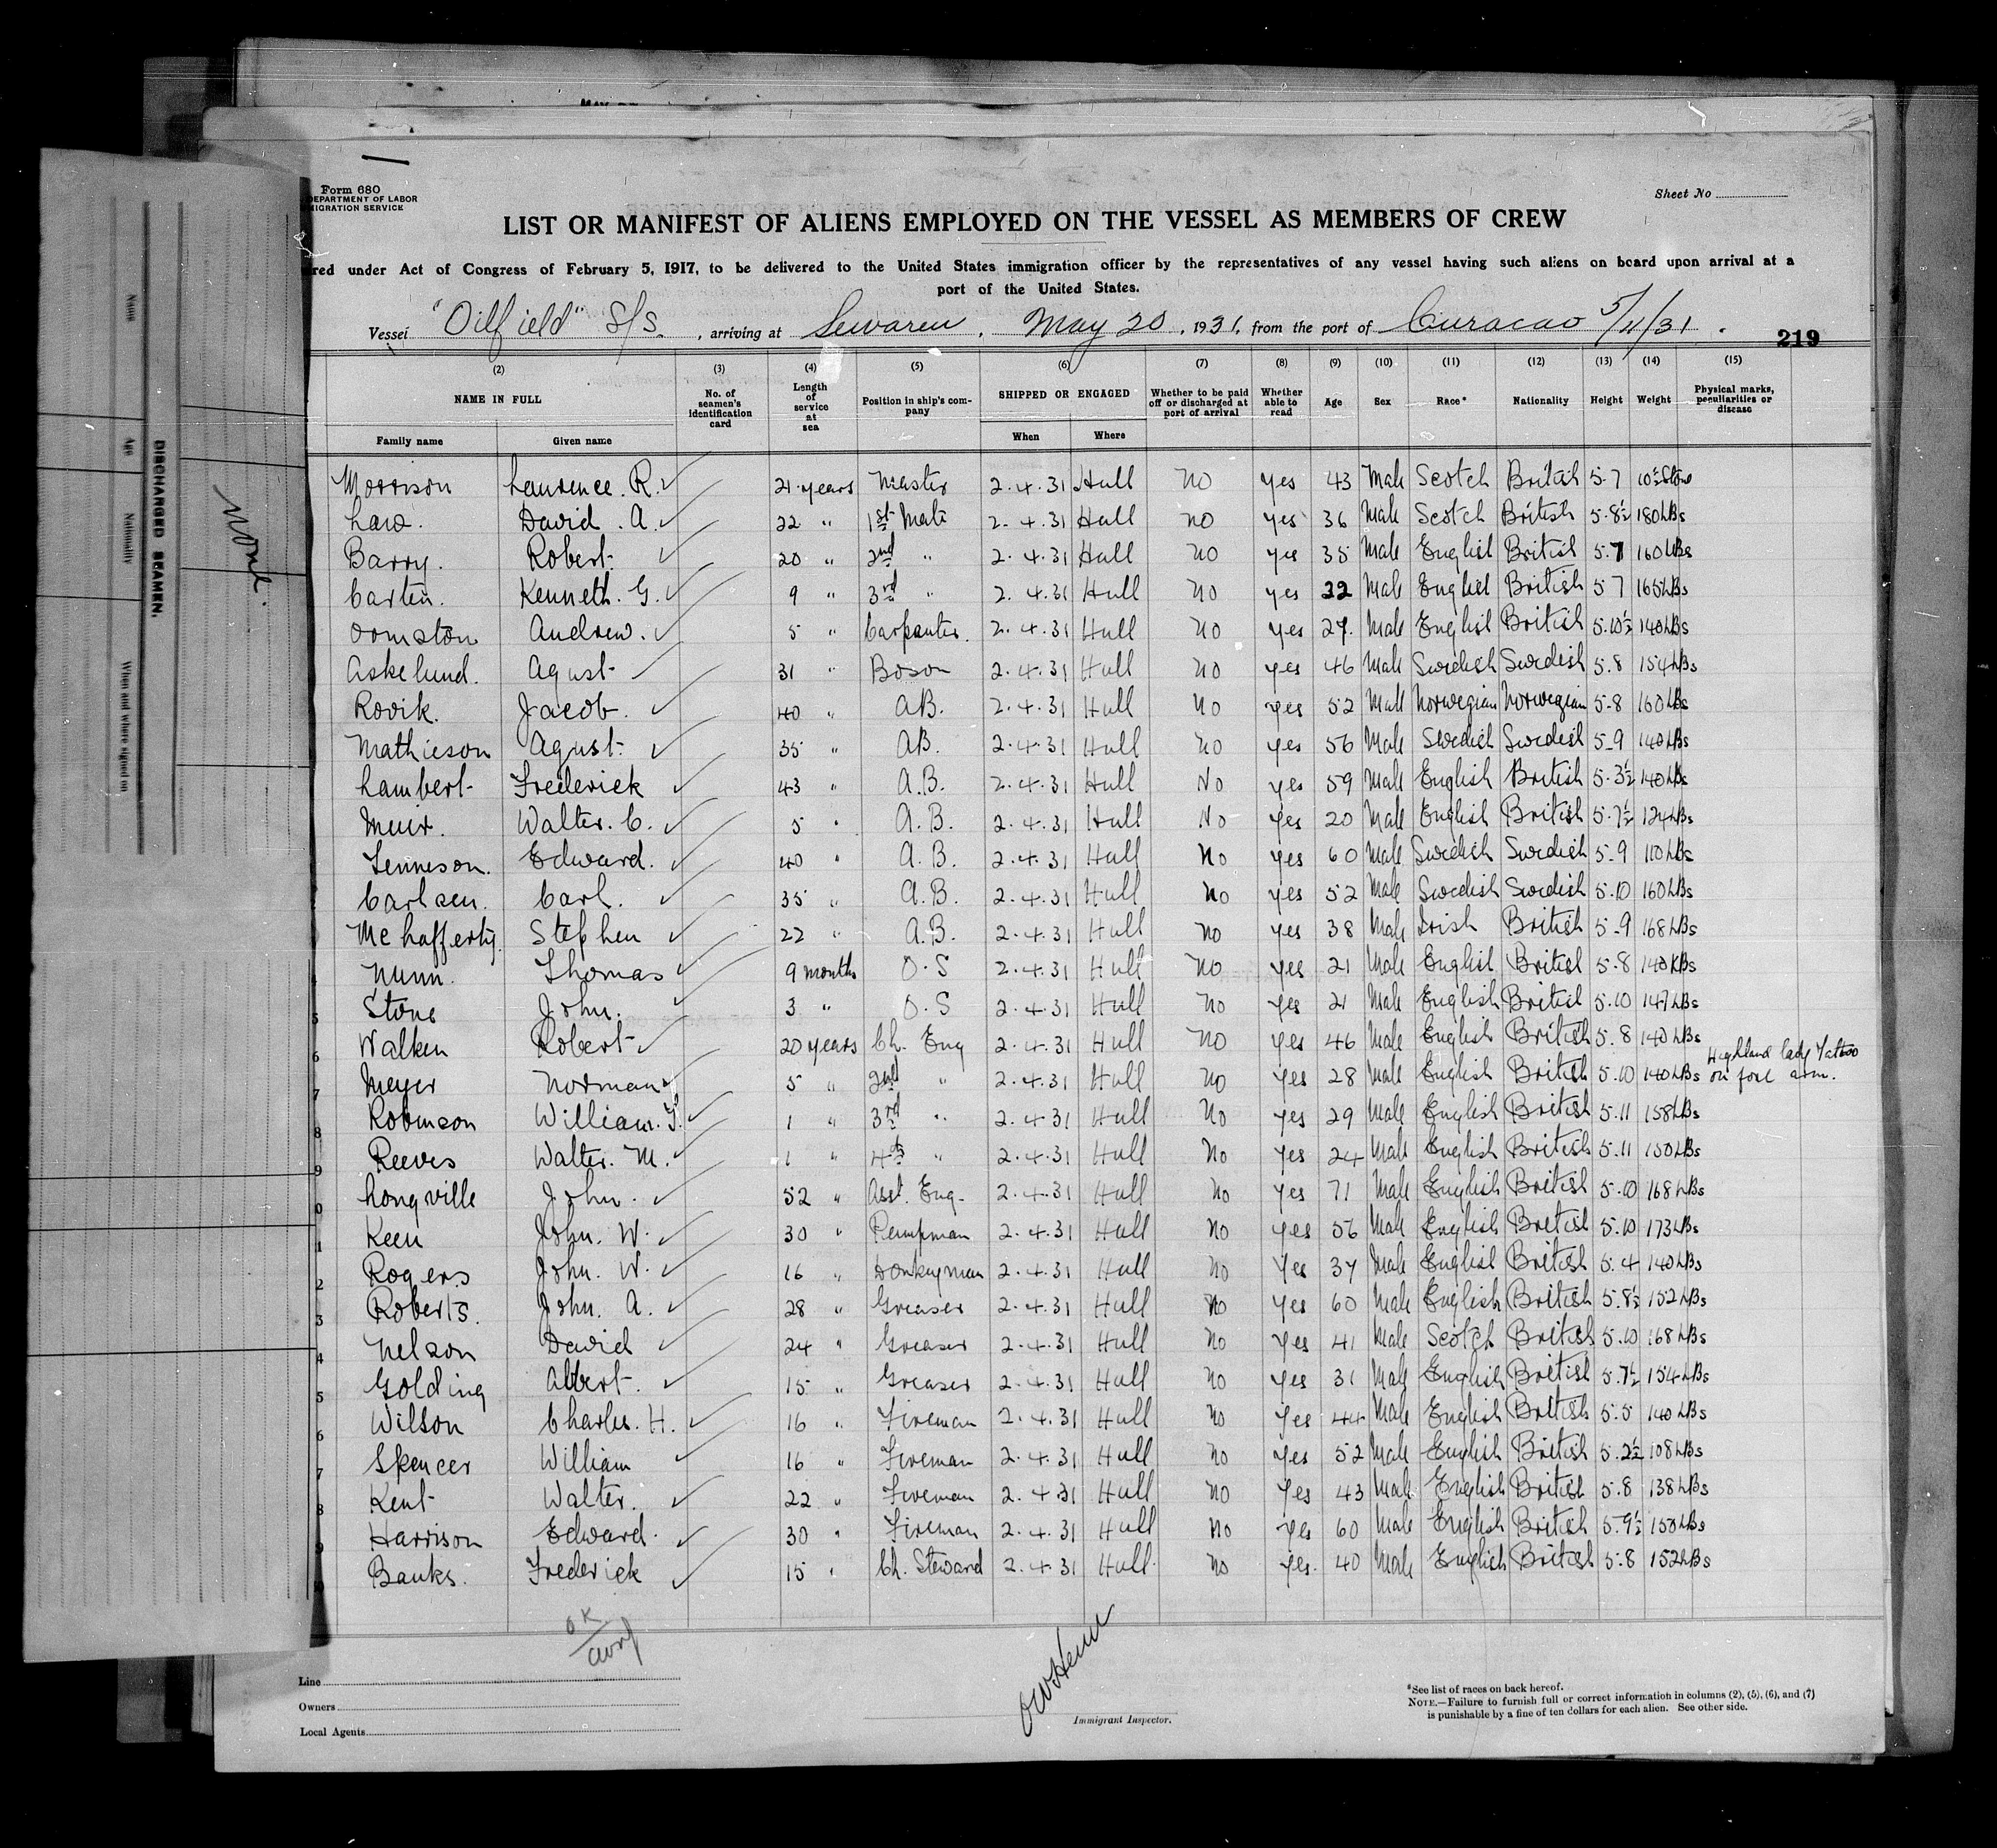 Form 680
DEPARTMENT OF LABOR
MIGRATION SERVICE
Sheet No
LIST OR MANIFEST OF ALIENS EMPLOYED ON THE VESSEL AS MEMBERS OF CREW
red under Act of Congress of February 5, 1917, to be delivered to the United States immigration officer by the representatives of any vessel having such aliens on board upon arrival at a
port of the United States.
Vessel "Oilfield" S/S. , arriving at Sewaren, May 20, 1931, from the port of Curacao 5/11/31.
219
(2) (3) (4) (5) (6) (7) (8) (9) (10) (11) (12) (13) (14) (15)
NAME IN FULL No. of seamen's identification card Length of service at sea Position in ship's company SHIPPED OR ENGAGED Whether to be paid off or discharged at port of arrival Whether able to read Age Sex Race* Nationality Height Weight Physical marks, peculiarities or disease
Family name Given name When Where
Morrison Laurence. R. 21 years Master 2.4.31 Hull No yes 43 Male Scotch British 5.7 10½ Stone
Law. David. A. 22 " 1st Mate 2.4.31 Hull No yes 36 Male Scotch British 5.8½ 180 LBs
Barry. Robert. 20 " 2nd " 2.4.31 Hull No yes 35 Male English British 5.7 160 LBs
Carten. Kenneth. G. 9 " 3rd " 2.4.31 Hull No yes 22 Male English British 5 7 165 LBs
Ormston Andrew. 5 " Carpenter. 2.4.31 Hull No yes 27. Male English British 5.10½ 140 LBs
Askelund. Agust 31 " Boson 2.4.31 Hull No yes 46 Male Swedish Swedish 5.8 154 LBs
Rovik. Jacob. 40 " AB. 2.4.31 Hull No yes 52 Male Norwegian Norwegian 5-8 160 LBs
Mathieson Agust 35 " AB. 2.4.31 Hull No yes 56 Male Swedish Swedish 5-9 140 LBs
Lambert Frederick 43 " A.B. 2.4.31 Hull No yes 59 Male English British 5.3½ 140 LBs
Muir. Walter. C. 5 " A.B. 2.4.31 Hull No yes 20 Male English British 5.7½ 124 LBs
Tenneson. Edward. 40 " A.B. 2.4.31 Hull No yes 60 Male Swedish Swedish 5-9 110 LBs
Carlsen. Carl. 35 " A.B. 2.4.31 Hull No yes 52 Male Swedish Swedish 5.10 160 LBs
McLafferty. Stephen 22 " A.B. 2.4.31 Hull No yes 38 Male Irish British 5-9 168 LBs
Nunn. Thomas 9 months O.S 2.4.31 Hull No yes 21 Male English British 5.8 140 LBs
Stone John. 3 " O.S 2.4.31 Hull No yes 21 Male English British 5.10 147 LBs
Walken Robert 20 years Ch. Eng 2.4.31 Hull No yes 46 Male English British 5.8 140 LBs
Meyer Norman 5 " 2nd " 2.4.31 Hull No yes 28 Male English British 5.10 140 LBs Highland lady Tattoo on fore arm.
Robinson William. T. 1 " 3rd " 2.4.31 Hull No yes 29 Male English British 5.11 158 LBs
Reeves Walter. M. 1 " 4th " 2.4.31 Hull No yes 24 Male English British 5.11 150 LBs
Longville John. 52 " Asst. Eng. 2.4.31 Hull No yes 71 Male English British 5.10 168 LBs
Keen John. W. 30 " Pumpman 2.4.31 Hull No yes 56 Male English British 5.10 173 LBs
Rogers John. W. 16 " Donkeyman 2.4.31 Hull No yes 37 Male English British 5.4 140 LBs
Roberts. John. A. 28 " Greaser 2.4.31 Hull No yes 60 Male English British 5.8½ 152 LBs
Nelson David 24 " Greaser 2.4.31 Hull No yes 41 Male Scotch British 5.10 168 LBs
Golding Albert. 15 " Greaser 2.4.31 Hull No yes 31 Male English British 5.7½ 154 LBs
Wilson Charles. H. 16 " Fireman 2.4.31 Hull No yes 44 Male English British 5.5 140 LBs
Spencer William 16 " Fireman 2.4.31 Hull No yes 52 Male English British 5.2½ 108 LBs
Kent Walter. 22 " Fireman 2.4.31 Hull No yes 43 Male English British 5.8 138 LBs
Harrison Edward. 30 " Fireman 2.4.31 Hull No yes 60 Male English British 5.9½ 150 LBs
Banks. Frederick 15 " Ch. Steward 2.4.31 Hull. No yes. 40 Male English British 5.8 152 LBs
OK
Line
Owners
Local Agents
Immigrant Inspector.
*See list of races on back hereof.
NOTE.—Failure to furnish full or correct information in columns (2), (5), (6), and (7)
is punishable by a fine of ten dollars for each alien. See other side.
DISCHARGED SEAMEN.
Name
Age
Nationality
When and where signed on
None.